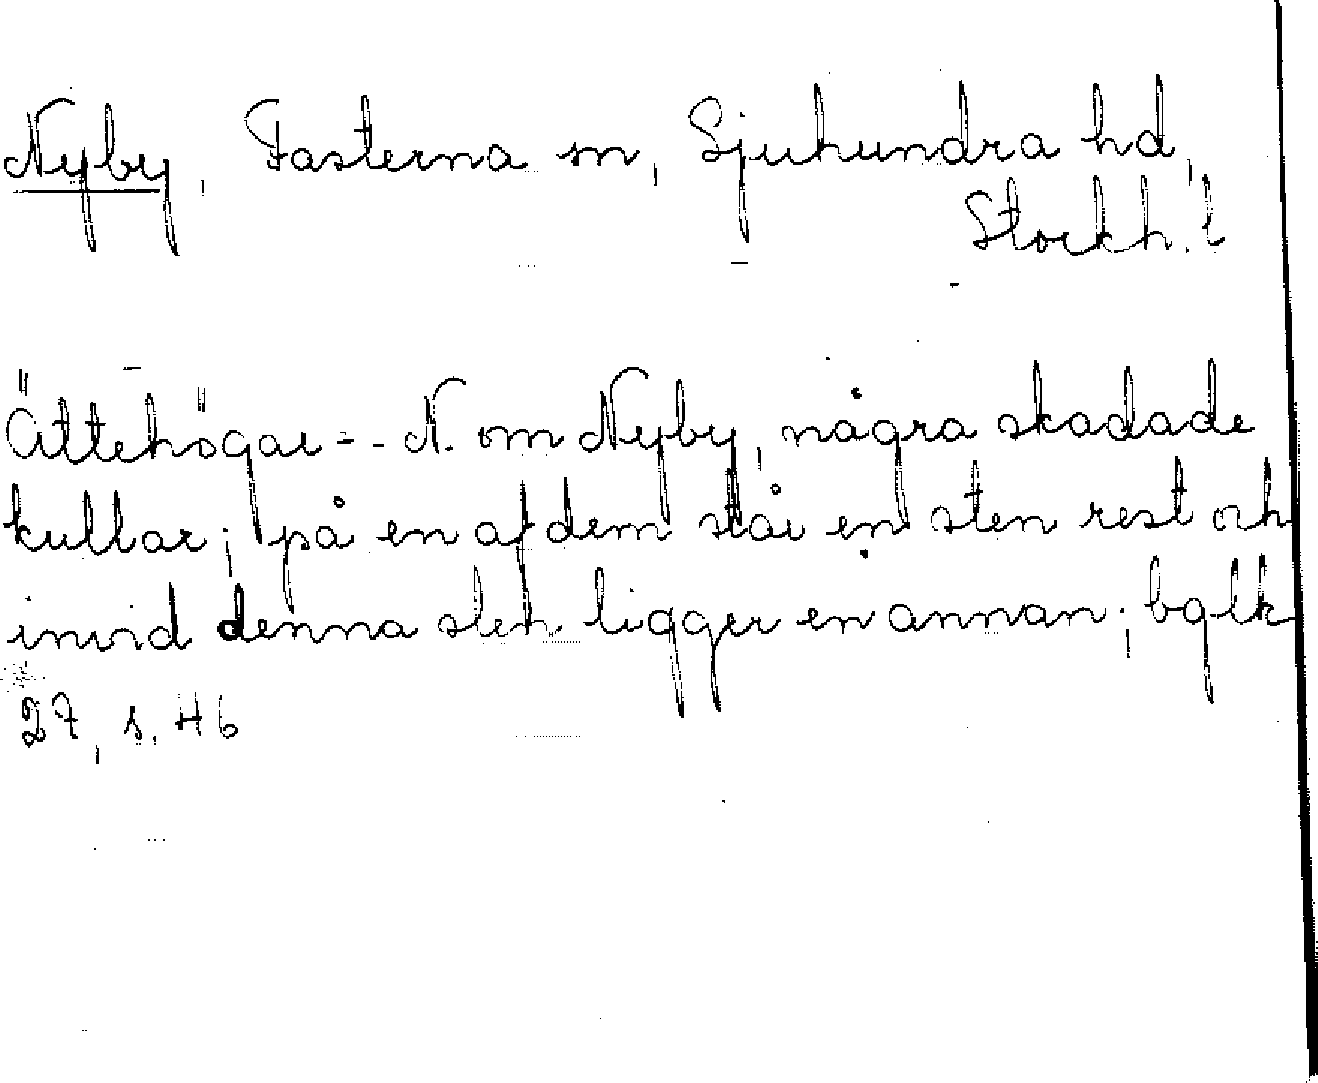 Nyby, Fasterna sn, Sjuhundra hd,
Stockh. l
Ättehögar - - N. om Nyby, några skadade
kullar; på en af dem står en sten rest och
invid denna sten ligger en annan; bglk
27, s. 46